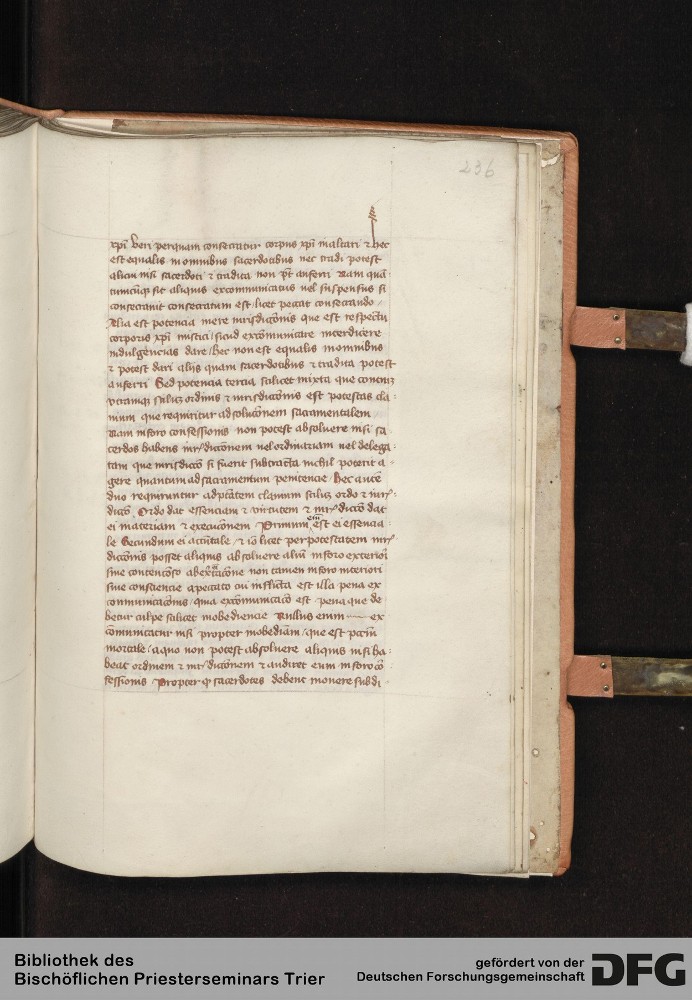 236
xpi veri per quam consecratur corpus xpi in altari & hec
est equalis in omnibus sacerdotibus nec tradi potest
alicui nisi sacerdoti & tradita non pt auferri Nam quā
tumcūqȝ sit aliquis excommunicatus vel suspensus si
consecrauit consecratum est / licet peccat consecrando /
Alia est potencia mere iurisdictōnis que est respectu
corporis xpi mistici / sicud excōmunicare interdicere
indulgencias dare / hec non est equalis in omnibus
& potest dari alijs quam sacerdotibus & tradita potest
auferri Sed potencia tercia scilicet mixta que concernit
vtramqȝ scilicet ordinis & iurisdictōnis est potestas cla
uium que requiritur ad solucōnem sacramentalem
Nam in foro confessionis non potest absoluere nisi sa
cerdos habens iur/dictōnem uel ordinariam uel delega
tam que iurisdictō si fuerit subtracta nichil poterit a
gere quantum ad sacramentum penitencie / Hec autē
duo requiruntur ad ptātem clauium scilicet ordo & iur/
dictō / Ordo dat essenciam & virtutem & iur/dictō dat
ei materiam & execucōnem / Primum eni est ei essencia
le Secundum ei accntale / & iō licet per potestatem iur/
dictōnis posset aliquis absoluere aliū in foro exteriori
siue contencioso ab excōicacōne non tamen in foro interiori
siue consciencie a peccato cui inflicta est illa pena ex
communicacōnis / quia excōmunicacō est pena que de
betur culpe scilicet inobediencie Nullus enim ex
cōmunicatur nisi propter inobediam / que est pctm
mortale / a quo non potest absoluere aliquis nisi ha
beat ordinem & iur/dictōnem & audiret eum in foro cō
fessionis / Propter qd sacerdotes debent monere subdi
Bibliothek des
Bischöflichen Priesterseminars Trier
gefördert von der
Deutschen Forschungsgemeinschaft
DFG